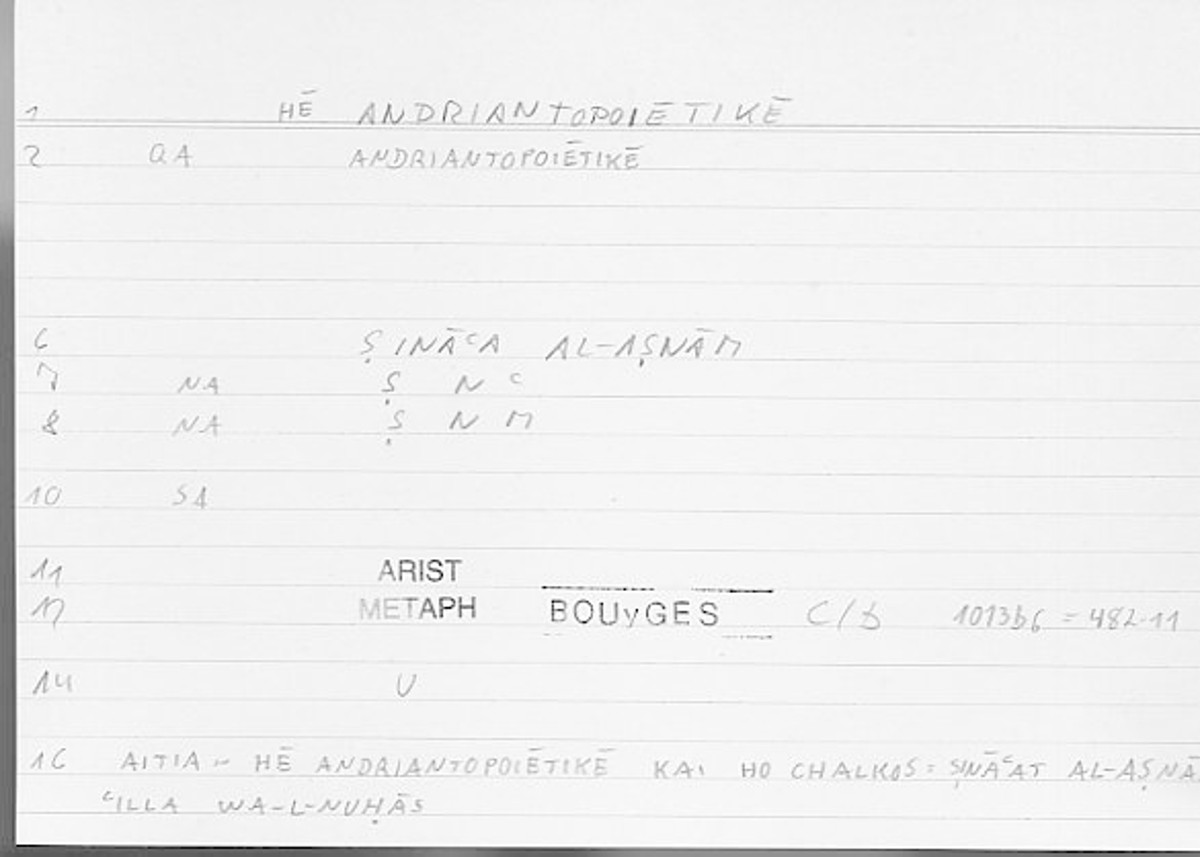 1 HĒ ANDRIANTOPOIĒTIKĒ
2 QA ANDRIANTOPOIĒTIKĒ
6 ṢINĀʿA AL-AṢNĀM
7 NA Ṣ N ʿ
8 NA Ṣ N M
10 SA
11 ARIST
12 METAPH BOUyGES C/D 1013b6 = 482.11
14 U
16 AITIA - HĒ ANDRIANTOPOIĒTIKĒ KAI HO CHALKOS = ṢINĀʿAT AL-AṢNĀ
ʿILLA WA-L-NUḤĀS